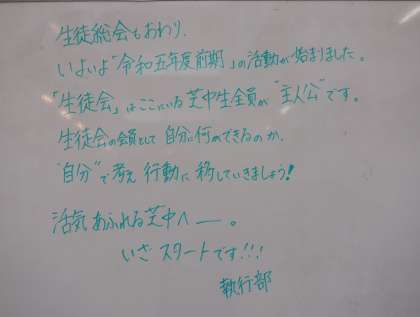 生徒総会もおわり、
いよいよ“令和五年度前期”の活動が始まりました。
「生徒会」はここにいる芝中生全員が“主人公”です。
生徒会の会員として自分に何ができるのか、
“自分”で考え行動に移していきましょう!
活気あふれる芝中へ―。
いざスタートです!!!
執行部